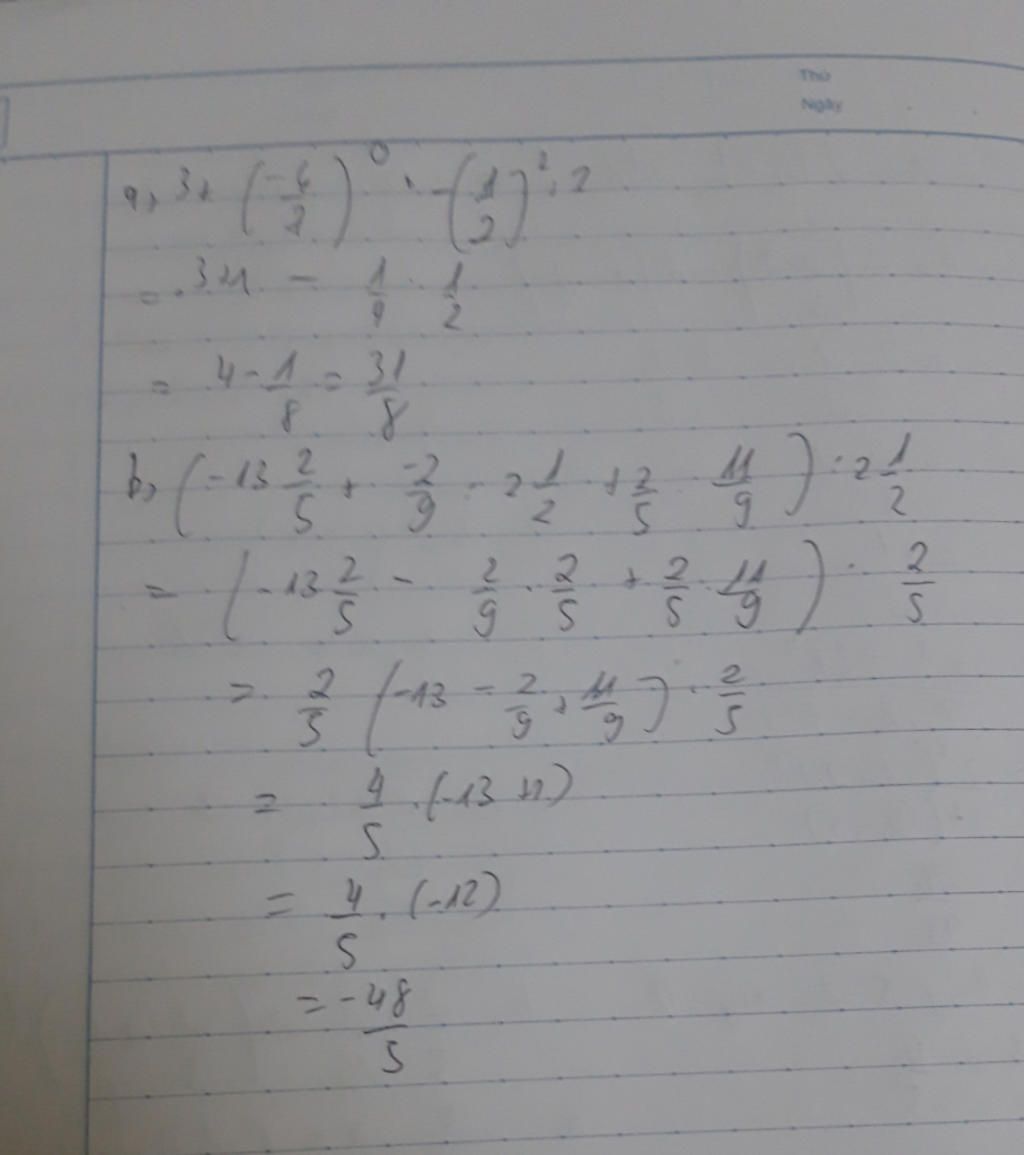 Thứ
Ngày
a, 3 + (-6/7)^0 - (1/2)^2 : 2
= 3+1 - 1/4 . 1/2
= 4 - 1/8 = 31/8
b, (-13 2/5 + -2/9 : 2 1/2 + 2/5 . 11/9) : 2 1/2
= (-13 2/5 - 2/9 . 2/5 + 2/5 . 11/9) . 2/5
= 2/5 (-13 - 2/9 + 11/9) . 2/5
= 4/5 . (-13 +1)
= 4/5 . (-12)
= -48/5